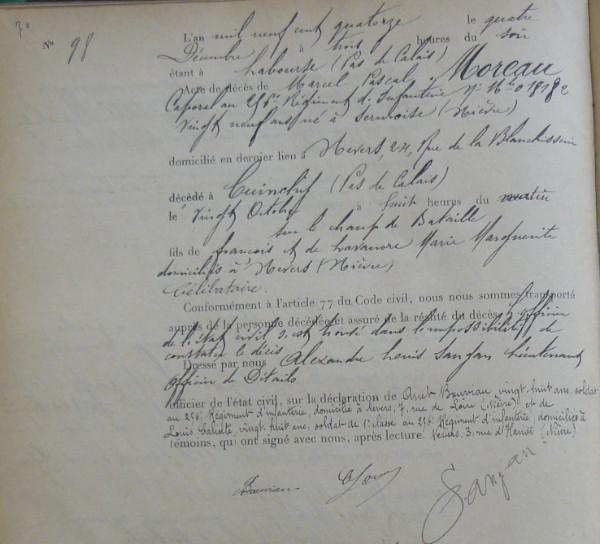 7°
N° 98
L'an mil neuf cent quatorze le quatre
Décembre à trois heures du soir
étant à Labourse (Pas de Calais)
Acte de décès de Marcel Pascal Moreau
Caporal au 256e Régiment d'Infanterie N° Mle 01818
Vingt neuf ans né à Sermoise (Nièvre)
domicilié en dernier lieu à Nevers, 24, rue de la Blanchisserie
décédé à Cuinchy (Pas de Calais)
le Vingt Octobre à huit heures du matin
sur le champ de Bataille
fils de françois et de Marie Marguerite
domiciliés à Nevers (Nièvre)
Célibataire.
Conformément à l'article 77 du Code civil, nous nous sommes transporté
auprès de la personne décédée et assuré de la réalité du décès, l'officier
de l'état civil s'est trouvé dans l'impossibilité de
constater le décès
Dressé par nous Alexandre Louis Sanjan Lieutenant
Officier de Détails
officier de l'état civil, sur la déclaration de Bouviau, vingt huit ans, soldat
au 256e Régiment d'infanterie, domicilié à Nevers, 7, rue de Loire (Nièvre) et de
Louis vingt huit ans, soldat de 1e classe au 256e Régiment d'infanterie, domicilié à
témoins, qui ont signé avec nous, après lecture. Nevers, 3, rue d' (Nièvre)
Sanjan